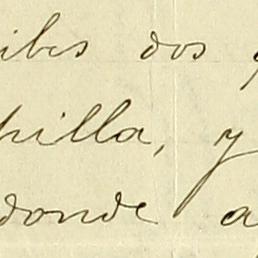 ibes dos
illa, y
donde a